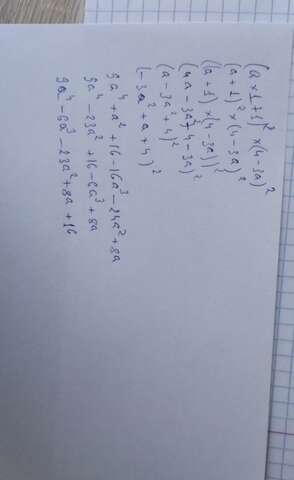 (a×1+1)² ×(4-3a)²
(a+1)² ×(4-3a)²
((a+1) ×(4-3a))²
(4a-3a²+4-3a)²
(a-3a²+4)²
(-3a²+a+4)²
9a⁴+a²+16-16a³-24a²+8a
9a⁴-23a²+16-6a³+8a
9a⁴-6a³-23a²+8a+16